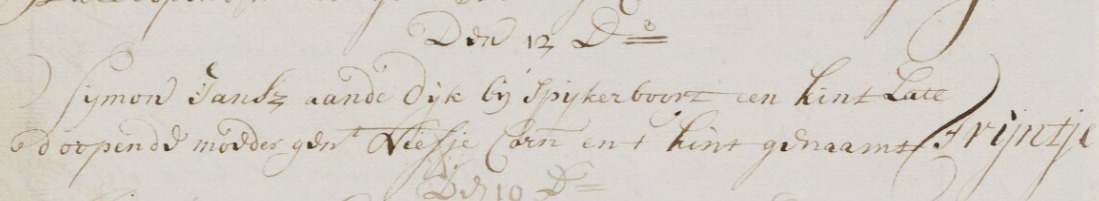 Den 12 Do
Symon Jansz aande Dijk bij Spijkerboort een kint Late
doopen de moeder gent Niesje Corn en t kint genaamt Trijntje
Den 19 D